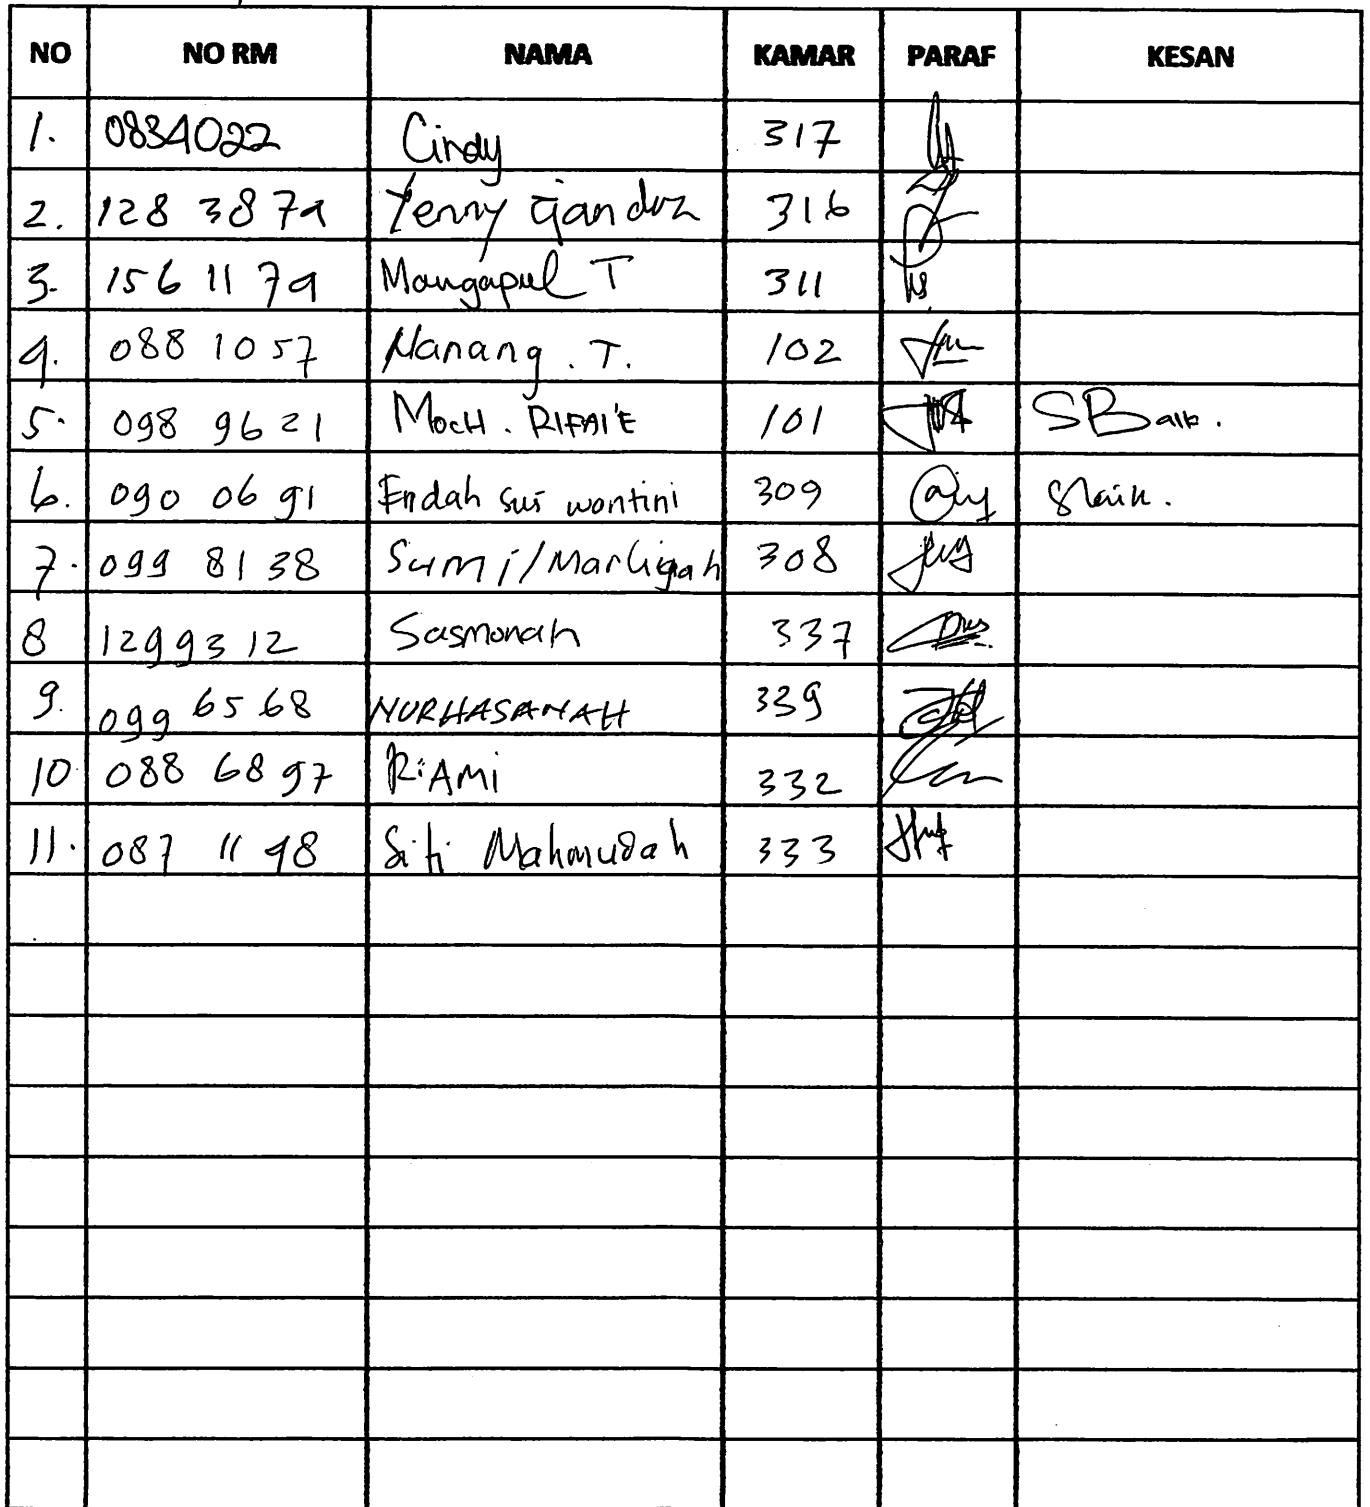 NO NO RM NAMA KAMAR PARAF KESAN
1. 0834022 Cindy 317
2. 128 38 79 Yenny 316
3. 156 11 79 Mangapul T 311
4. 088 10 57 Nanang . T. 102
5. 098 96 21 MocH . RIFAI'E 101 SBaik.
6. 090 06 91 Endah sus wontini 309
7. 099 81 38 Sumi/Marligah 308
8 1299312 Sasmonah 337
9. 099 65 68 NURHASANAH 339
10 088 68 97 RiAMi 332
11. 087 11 98 Siti Mahmudah 333